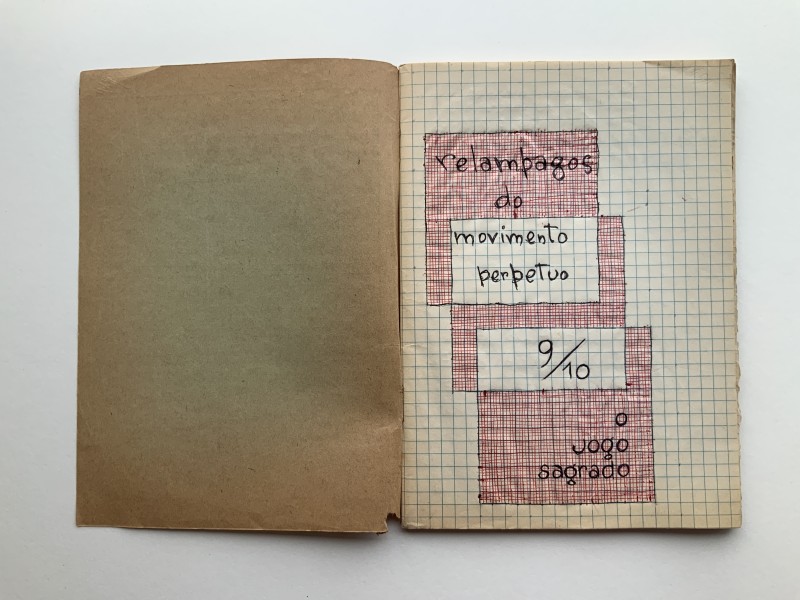 relampagos
do
movimento
perpetuo
9/10
o
jogo
sagrado